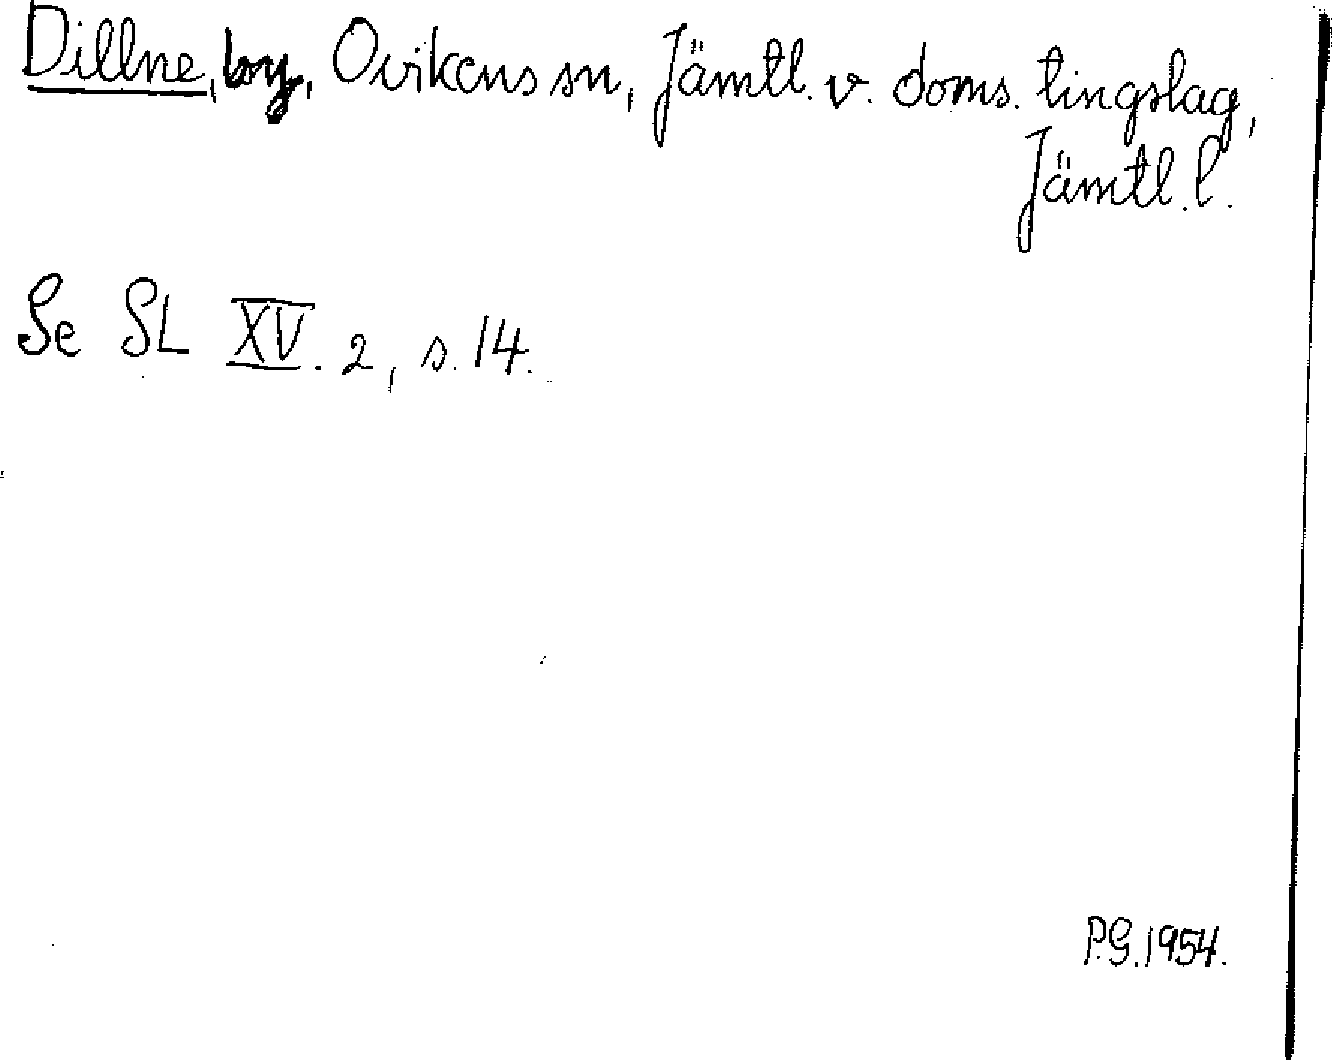 Dillne, by, Ovikens sn, Jämtl. v. doms. tingslag,
Jämtl. l.
Se SL XV. 2, s. 14.
P.G. 1954.